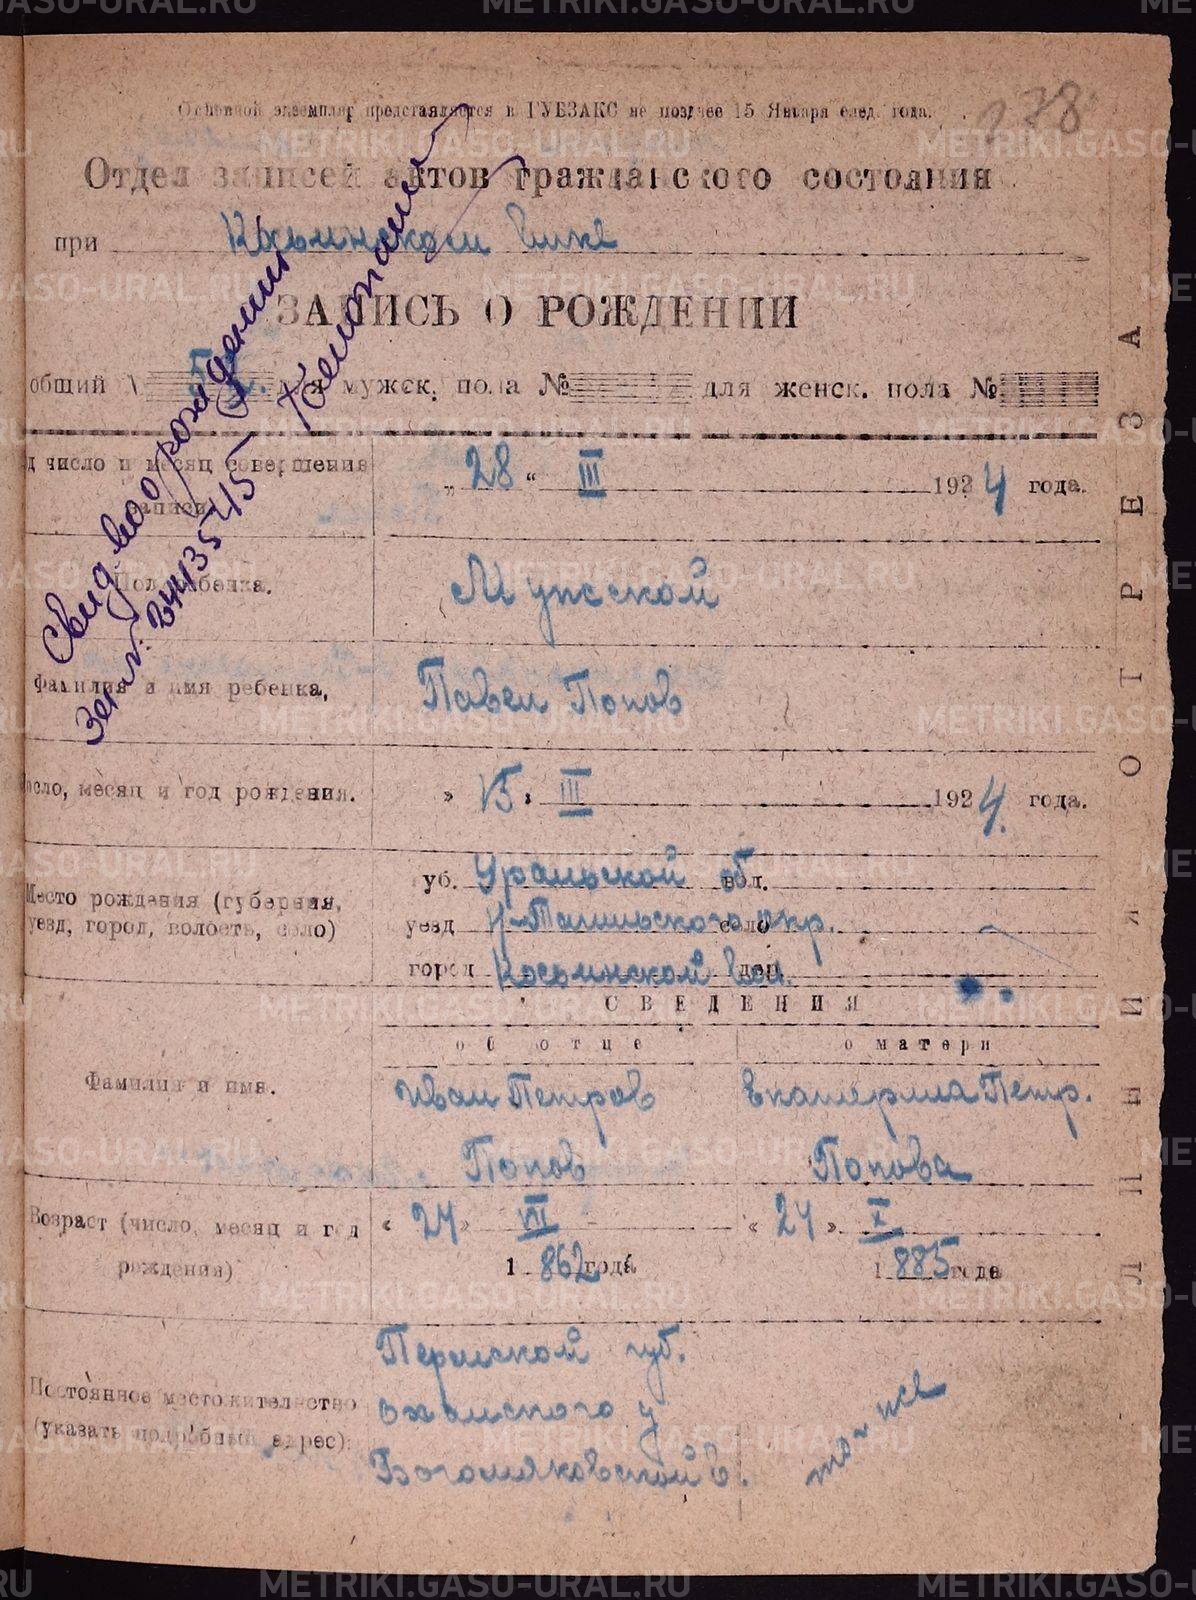 Основной экземпляр представляется в ГУБЗАКС не позднее 15 Января след. года.
278
Отдел записей актов гражданского состояния
при Косьинском
ЗАПИСЬ О РОЖДЕНИИ
общий для мужск. пола № для женск. пола №
д число и месяц совершения записи
„ 28 “ III 1924 года.
Пол ребенка.
Мужской
Фамилия и имя ребенка,
Павел Попов
исло, месяц и год рождения.
» 15 » III 1924 года.
Место рождения (губерния, уезд, город, волость, село)
уб. Уральской обл. вол.
уезд Н-Тагильского окр. село
город Косьинской вол. дер.
СВЕДЕНИЯ
об отце
о матери
Фамилия и имя.
Иван Петров Попов
Екатерина Петр. Попова
Возраст (число, месяц и год рождения)
« 24 » VII 1862 года
« 24 » X 1885 года
Постоянное местожительство (указать подробный адрес):
Пермской губ.
Оханского у
Богомяковской в.
то же
Свид во о рождении
344135415
ЛИНИЯ ОТРЕЗА
METRIKI.GASO-URAL.RU